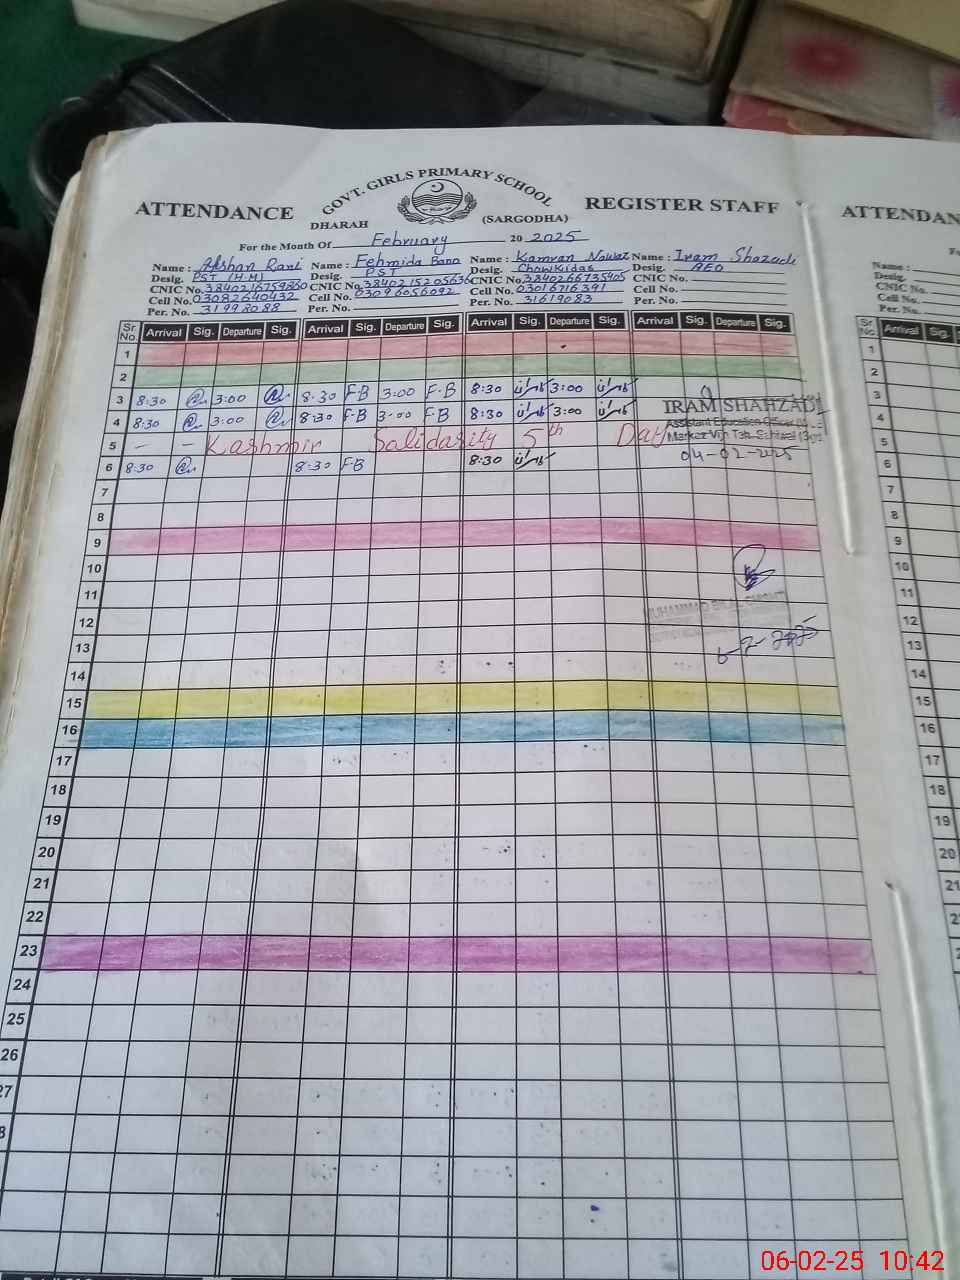 GOVT. GIRLS PRIMARY SCHOOL
ATTENDANCE REGISTER STAFF
DHARAH (SARGODHA)
For the Month Of February 20 2025
Name: Afshan Rani Name: Fehmida Bano Name: Kamran Nawaz Name: Iram Shazadi
Desig. PST (H.M) Desig. PST Desig. Chowkidas Desig. AEO
CNIC No. CNIC No. CNIC No. 3840266735405 CNIC No.
Cell No. 03082640432 Cell No. 03096056092 Cell No. 03016716391 Cell No.
Per. No. 31998088 Per. No. Per. No. 31619083 Per. No.
Sr No. Arrival Sig. Departure Sig. Arrival Sig. Departure Sig. Arrival Sig. Departure Sig. Arrival Sig. Departure Sig.
1
2
3 8:30 3:00 8:30 F-B 3:00 F-B 8:30 کامران 3:00 کامران
4 8:30 3:00 8:30 F-B 3:00 F-B 8:30 کامران 3:00 کامران
IRAM SHAHZADI
Assistant Education Officer
5 - - Kashmir Salidarity 5th Day
Markaz Vijh Teh. Sahiwal (Sgd)
04-02-2025
6 8:30 8:30 F-B 8:30 کامران
7
8
9
10
11
MUHAMMAD BILAL
12
6-2-2025
13
14
15
16
17
18
19
20
21
22
23
24
25
26
27
8
ATTENDAN
Name:
Desig.
CNIC No.
Cell No.
Per. No.
Sr No. Arrival Sig.
1
2
3
4
5
6
7
8
9
10
11
12
13
14
15
16
17
18
19
20
21
22
06-02-25 10:42